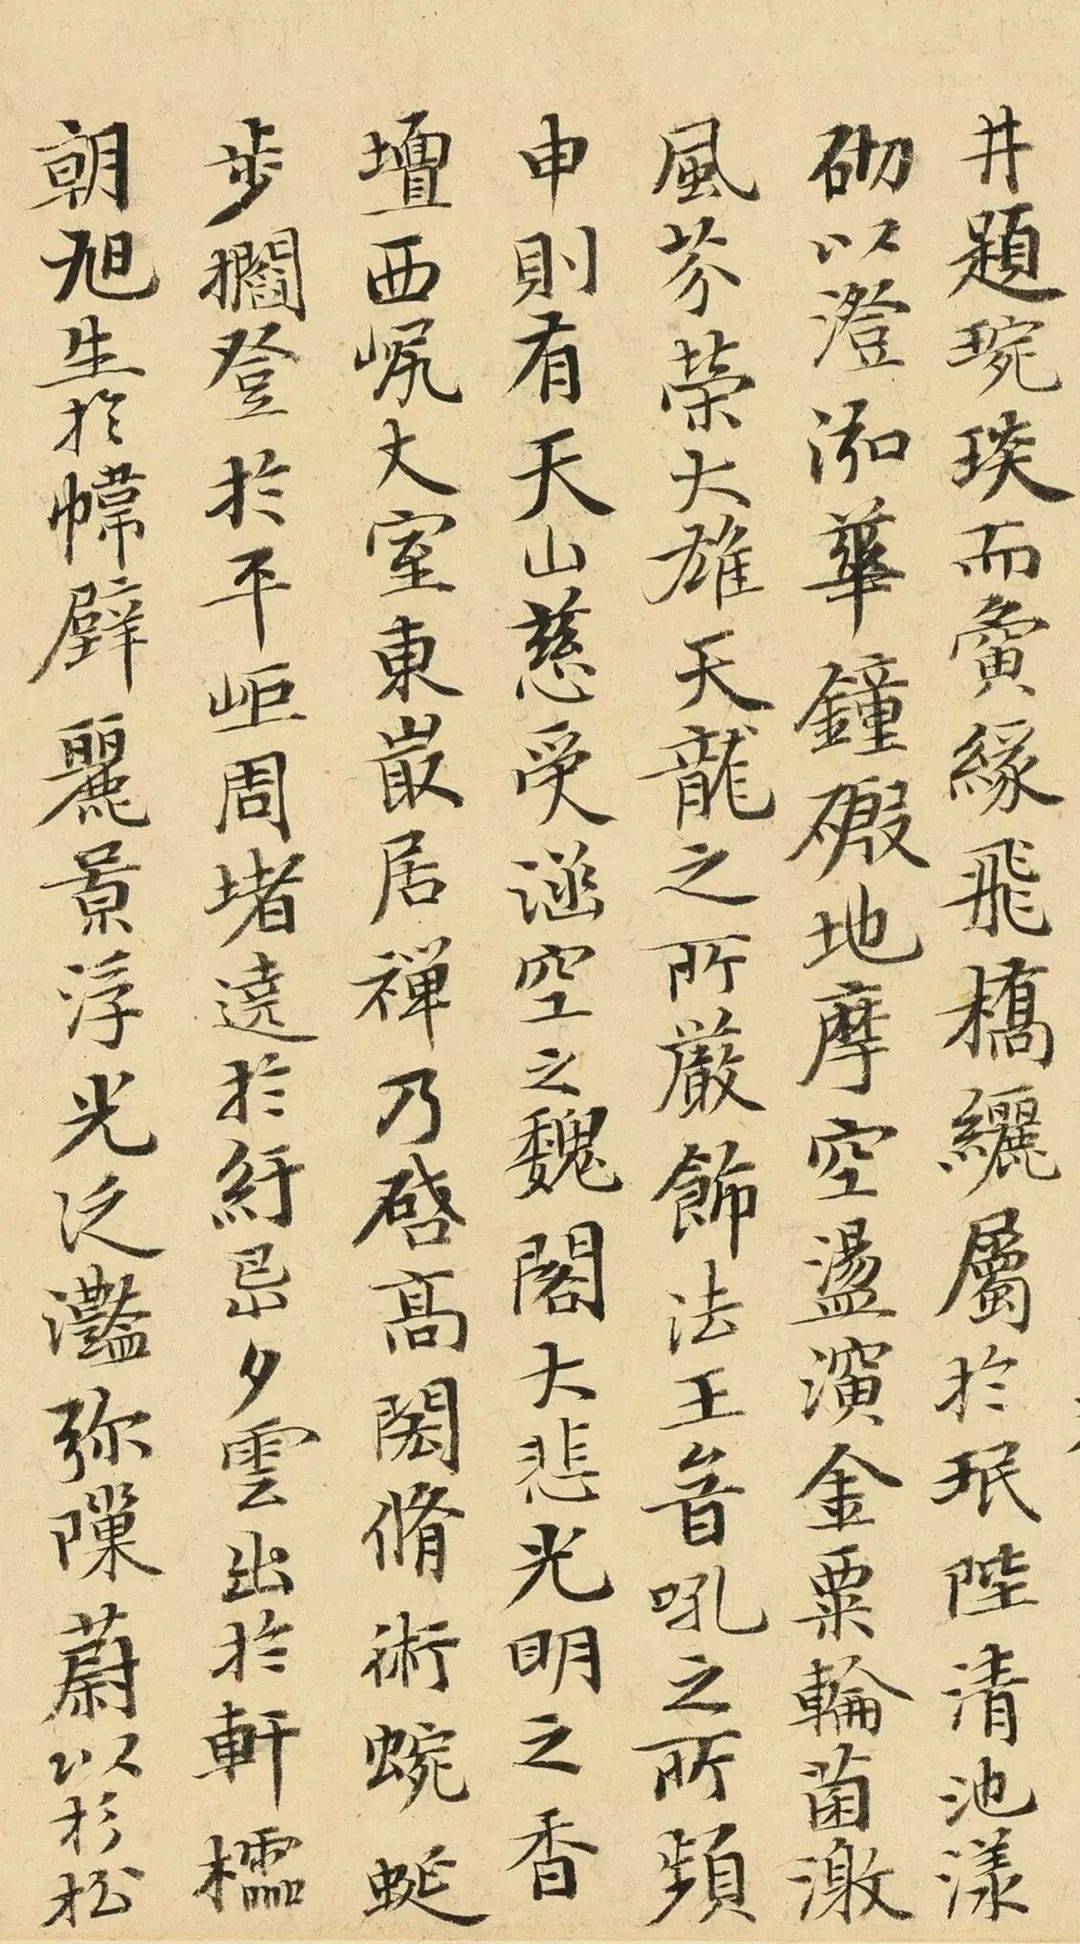 井題琬琰而夤緣飛橋纚屬於珉陛清池漾
砌以澄泓華鐘殿地摩空盪濱金粟輪菌激
風芬榮大雄天龍之所嚴飾法王音吼之所頻
申則有天山慈受涵空之魏閣大悲光明之香
壇西㞳大室東嚴居禪乃啓高閎脩術蜿蜒
步櫩登於平岠周堵遶於紆夕雲出於軒櫺
朝旭生於幃壁麗景浮光泛灧弥隟蔚以杉松